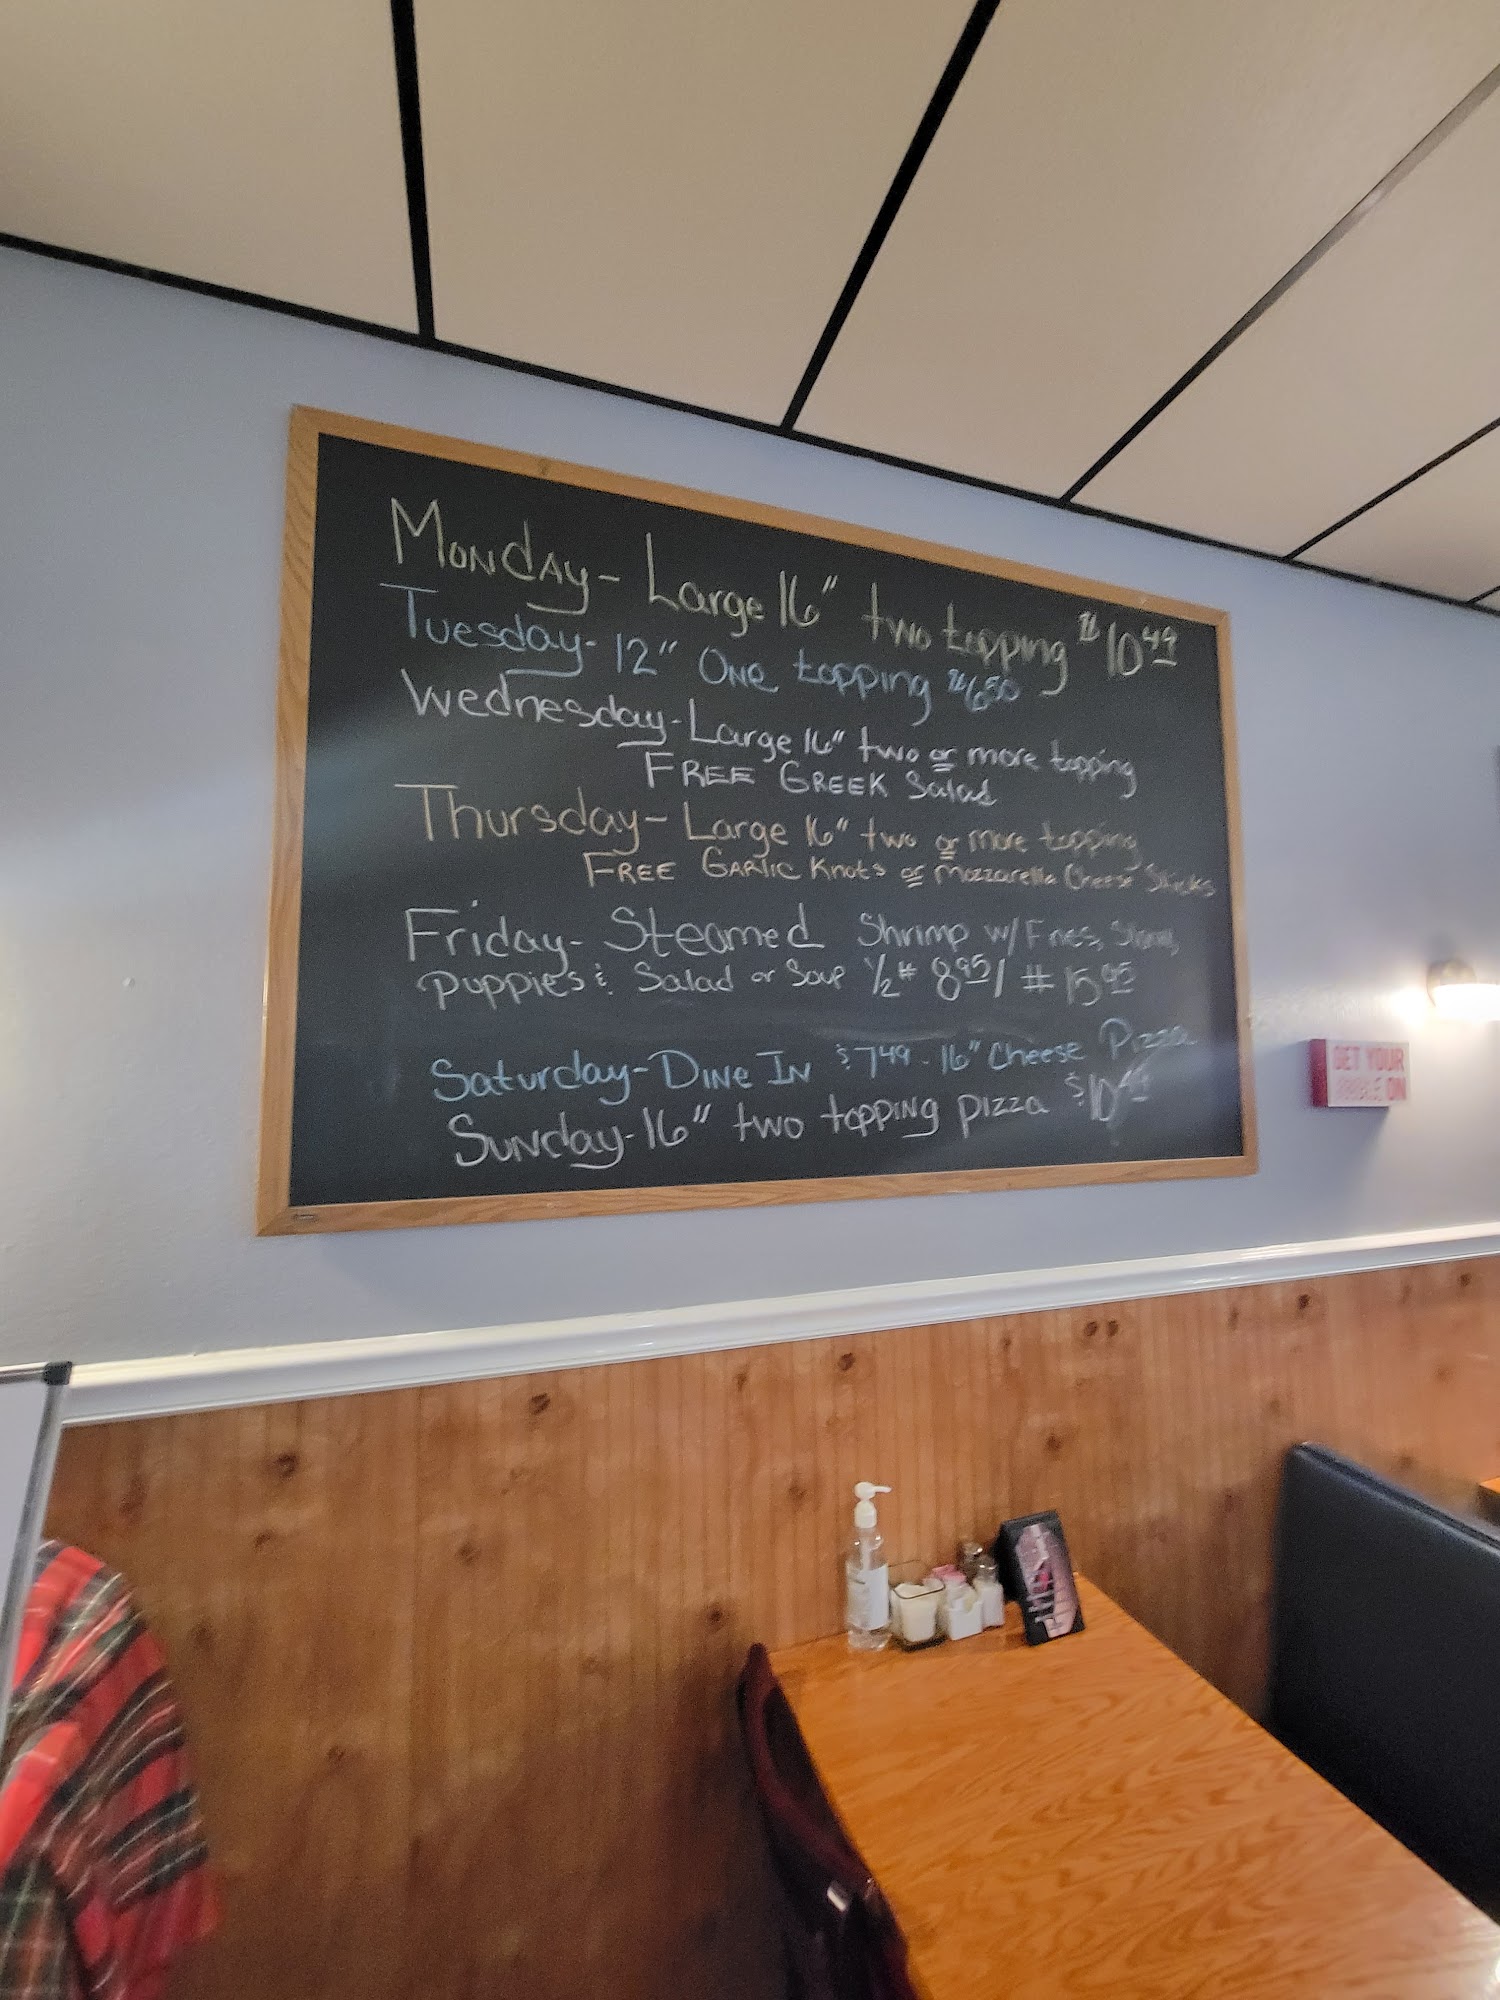 Monday- Large 16" two topping $10.49
Tuesday- 12" One topping $6.50
Wednesday- Large 16" two or more topping
FREE GREEK Salad
Thursday- Large 16" two or more topping
FREE GARLIC Knots or Mozzarella Cheese Sticks
Friday- Steamed Shrimp w/ Fries, Slaw,
Puppies & Salad or Soup ½# 8.95/ # 15.95
Saturday- DINE IN $7.49 - 16" Cheese Pizza
Sunday- 16" two topping pizza $10.49
GET YOUR
ON